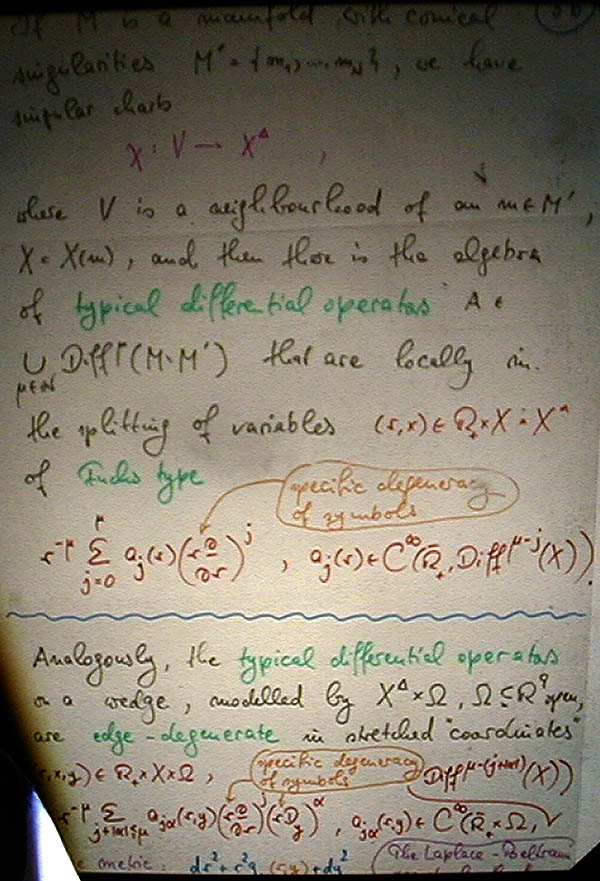 If M is a manifold with conical
singularities M' = {m₁, ..., m_N}, we have
singular charts
χ : V → X^Δ ,
where V is a neighbourhood of an m ∈ M',
X = X(m), and then there is the algebra
of typical differential operators A ∈
∪_{μ∈ℕ} Diff^μ(M∖M') that are locally in
the splitting of variables (r,x) ∈ ℝ₊×X = X^∧
of Fuchs type
specific degeneracy
of symbols
r^{-μ} Σ_{j=0}^{μ} a_j(r) (r ∂/∂r)^j , a_j(r) ∈ C^∞(ℝ̄₊, Diff^{μ-j}(X))
Analogously, the typical differential operators
on a wedge, modelled by X^Δ × Ω, Ω ⊆ ℝ^q open,
are edge-degenerate in stretched "coordinates"
(r,x,y) ∈ ℝ₊×X×Ω ,
specific degeneracy
of symbols
Diff^{μ-(j+|α|)}(X))
r^{-μ} Σ_{j+|α|≤μ} a_{jα}(r,y) (r ∂/∂r)^j (r D_y)^α , a_{jα}(r,y) ∈ C^∞(ℝ̄₊ × Ω,
metric: dr² + r² g (r,y) + dy²
The Laplace-Beltrami